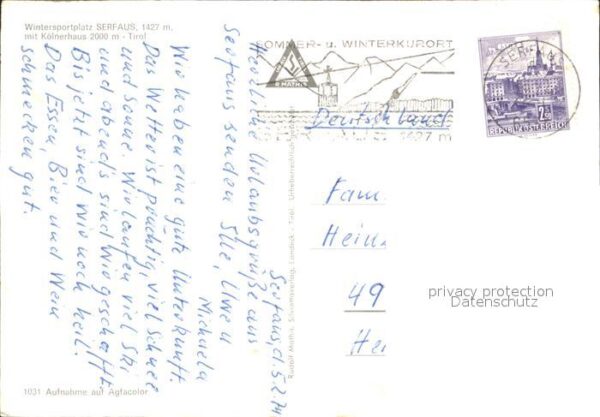 Wintersportplatz SERFAUS, 1427 m,
mit Kölnerhaus 2000 m - Tirol
SOMMER- u. WINTERKURORT
1427 m
2S
REPUBLIK ÖSTERREICH
Deutschland
Serfaus, d. 5.2.74
Herzliche Urlaubsgrüße aus
Serfaus senden Silke, Uwe u
Michaela
Wir haben eine gute Unterkunft.
Das Wetter ist prächtig, viel Schnee
und Sonne. Wir laufen viel Ski
und abend's sind wir geschafft.
Bis jetzt sind wir noch heil.
Das Essen, Bier und Wein
schmecken gut.
Fam.
Hein
49
He
privacy protection
Datenschutz
Rudolf Mathis, Silvrettaverlag, Landeck - Tirol.
1031 Aufnahme auf Agfacolor